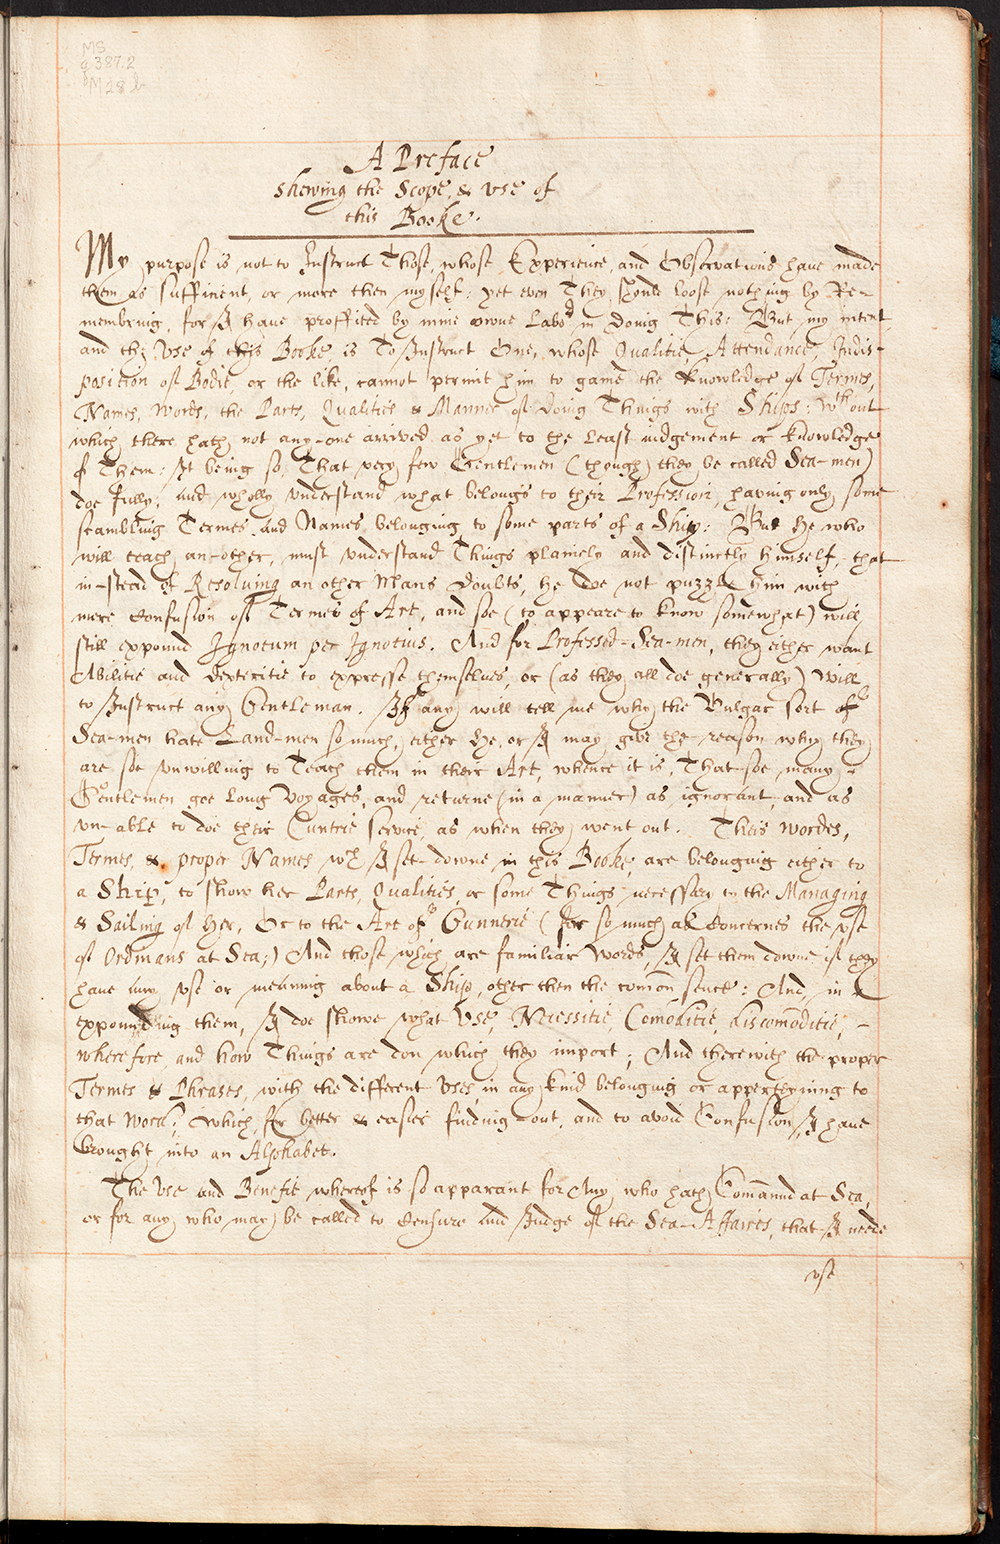 MS
q 387.2
M 28 b
A Preface
shewing the Scope, & vse of
this Booke.
My purpose is not to Instruct Those, whose Experience, and Observations have made
them as sufficient, or more then myself: yet even They should loose nothing by Re-
membring, for I have proffited by mine owne Labor in doing This: But my intent,
and the Vse of this Booke, is To Instruct One, whose Qualitie, Attendance, Indis-
position of Bodie, or the like, cannot permit him to gaine the knowledge of Termes,
Names, Words, the Parts, Qualities & Manner of doing Things with Ships: Wthout
which there hath not any-one arrived as yet to the Least iudgement or knowledge
of Them: It being so, That very few Gentlemen (though they be called Sea-men)
doe fully, and wholly vnderstand what belongs to their Profession, having only some
scambling Termes and Names belonging to some parts of a Ship: But he who
will teach an-other, must vnderstand Things plainely and distinctly himself, that
in-stead of Resolving an other Mans doubts, he doe not puzzle him with
more Confusion of Termes of Art, and soe (to appeare to know somewhat) will
still expound Ignotum per Ignotius. And for Professed-Sea-men, they either want
Abilitie and dexteritie to expresse themselves, or (as they all doe generally) Will
to Instruct any Gentleman. If any will tell me why the Vulgar sort of
Sea-men hate Land-men so much, either he, or I may give the reason why they
are soe vnwilling to Teach them in their Art, whence it is, That soe many -
Gentlemen goe Long Voyages, and returne (in a manner) as ignorant, and as
vn-able to doe their Cuntrie service, as when they went out. Theis Wordes,
Termes, & proper Names wch I set-downe in this Booke, are belonging either to
a Ship, to show her Parts, Qualities, or some Things necessary to the Managing
& Sailing of her, Or to the Art of Gunnerie (for so much as Concernes the vse
of Ordinans at Sea;) And those which are familiar Words, I set them downe if they
have any vse or meaning about a Ship, other then the comon sence: And, in
expounding them, I doe showe what Vse, Necessitie, Comoditie, discomoditie, -
wherefore, and how Things are don which they import; And therewith the proper
Termes & Phrases, with the different Vses, in any kind belonging or apperteyning to
that Word; Which, for better & easier finding-out, and to avoid Confusion, I have
brought into an Alphabet.
The Vse and Benefit whereof is so apparant for Any who hath Comannd at Sea,
or for any who may be called to Censure and Judge of the Sea-Affaires, that I neede
vse